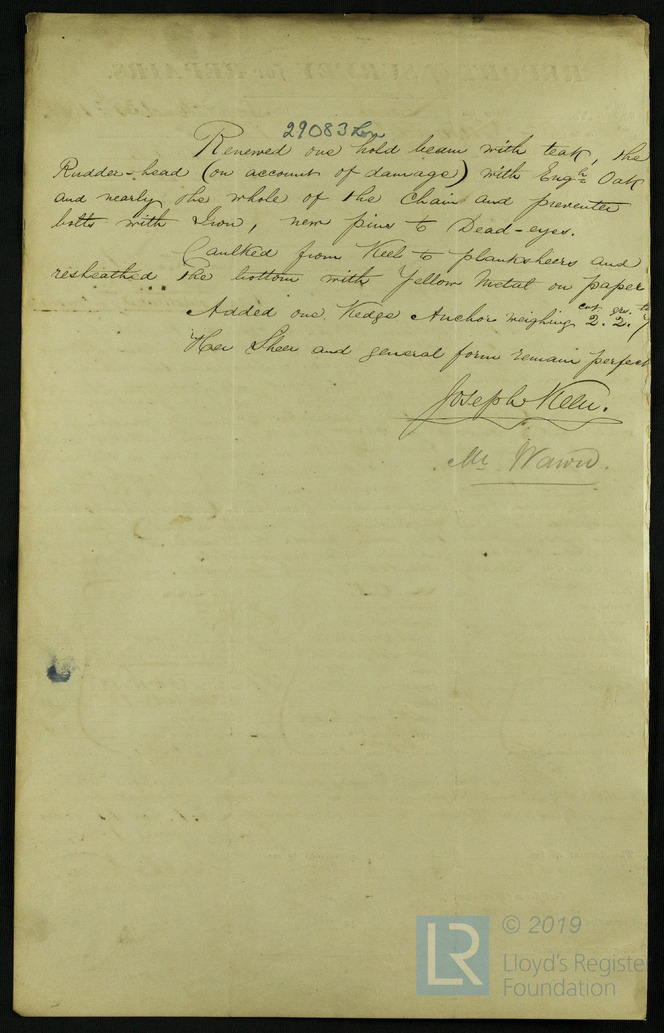 29083 Lon
Renewed one hold beam with teak, the
Rudder-head (on account of damage) with Engh Oak
and nearly the whole of the Chain and preventer
bolts with Iron, new pins to Dead-eyes.
Caulked from Keel to planksheers and
resheathed the bottom with Yellow Metal on paper
cwt. qrs.
Added one Kedge Anchor weighing 2. 2.
Her Sheer and general form remain perfect
Joseph Keen.
Mr Wawn.
REPORT of SURVEY for REPAIRS.
© 2019
LR
Lloyd's Registe
Foundation